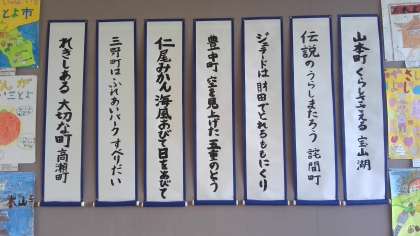 山本町 くらしささえる 宝山湖
伝説のうらしまたろう 詫間町
ジェラードは 財田でとれるももにくり
豊中町 空を見上げた 五重のとう
仁尾みかん 海風あびて 日をあびて
三野町は ふれあいパーク すべりだい
れきしある 大切な町 高瀬町
とよ市